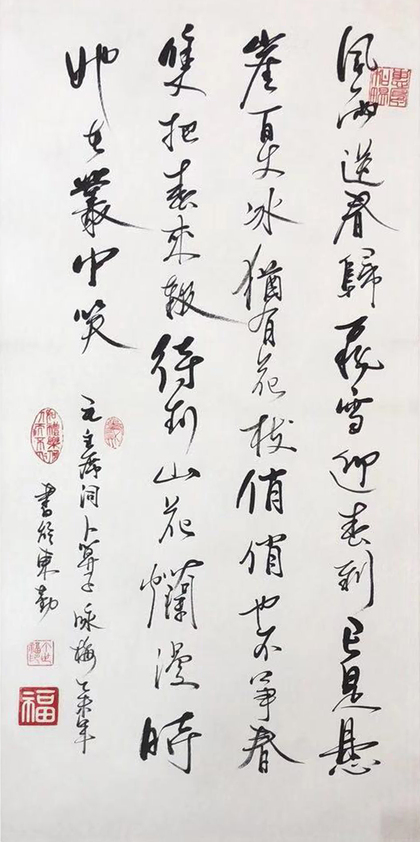 風雨送春歸飛雪迎春到已是懸
崖百丈冰猶有花枝俏俏也不爭春
隻把春來報待到山花爛漫時
她在叢中笑
毛主席詞卜算子咏梅乙未年
書於東勤
福